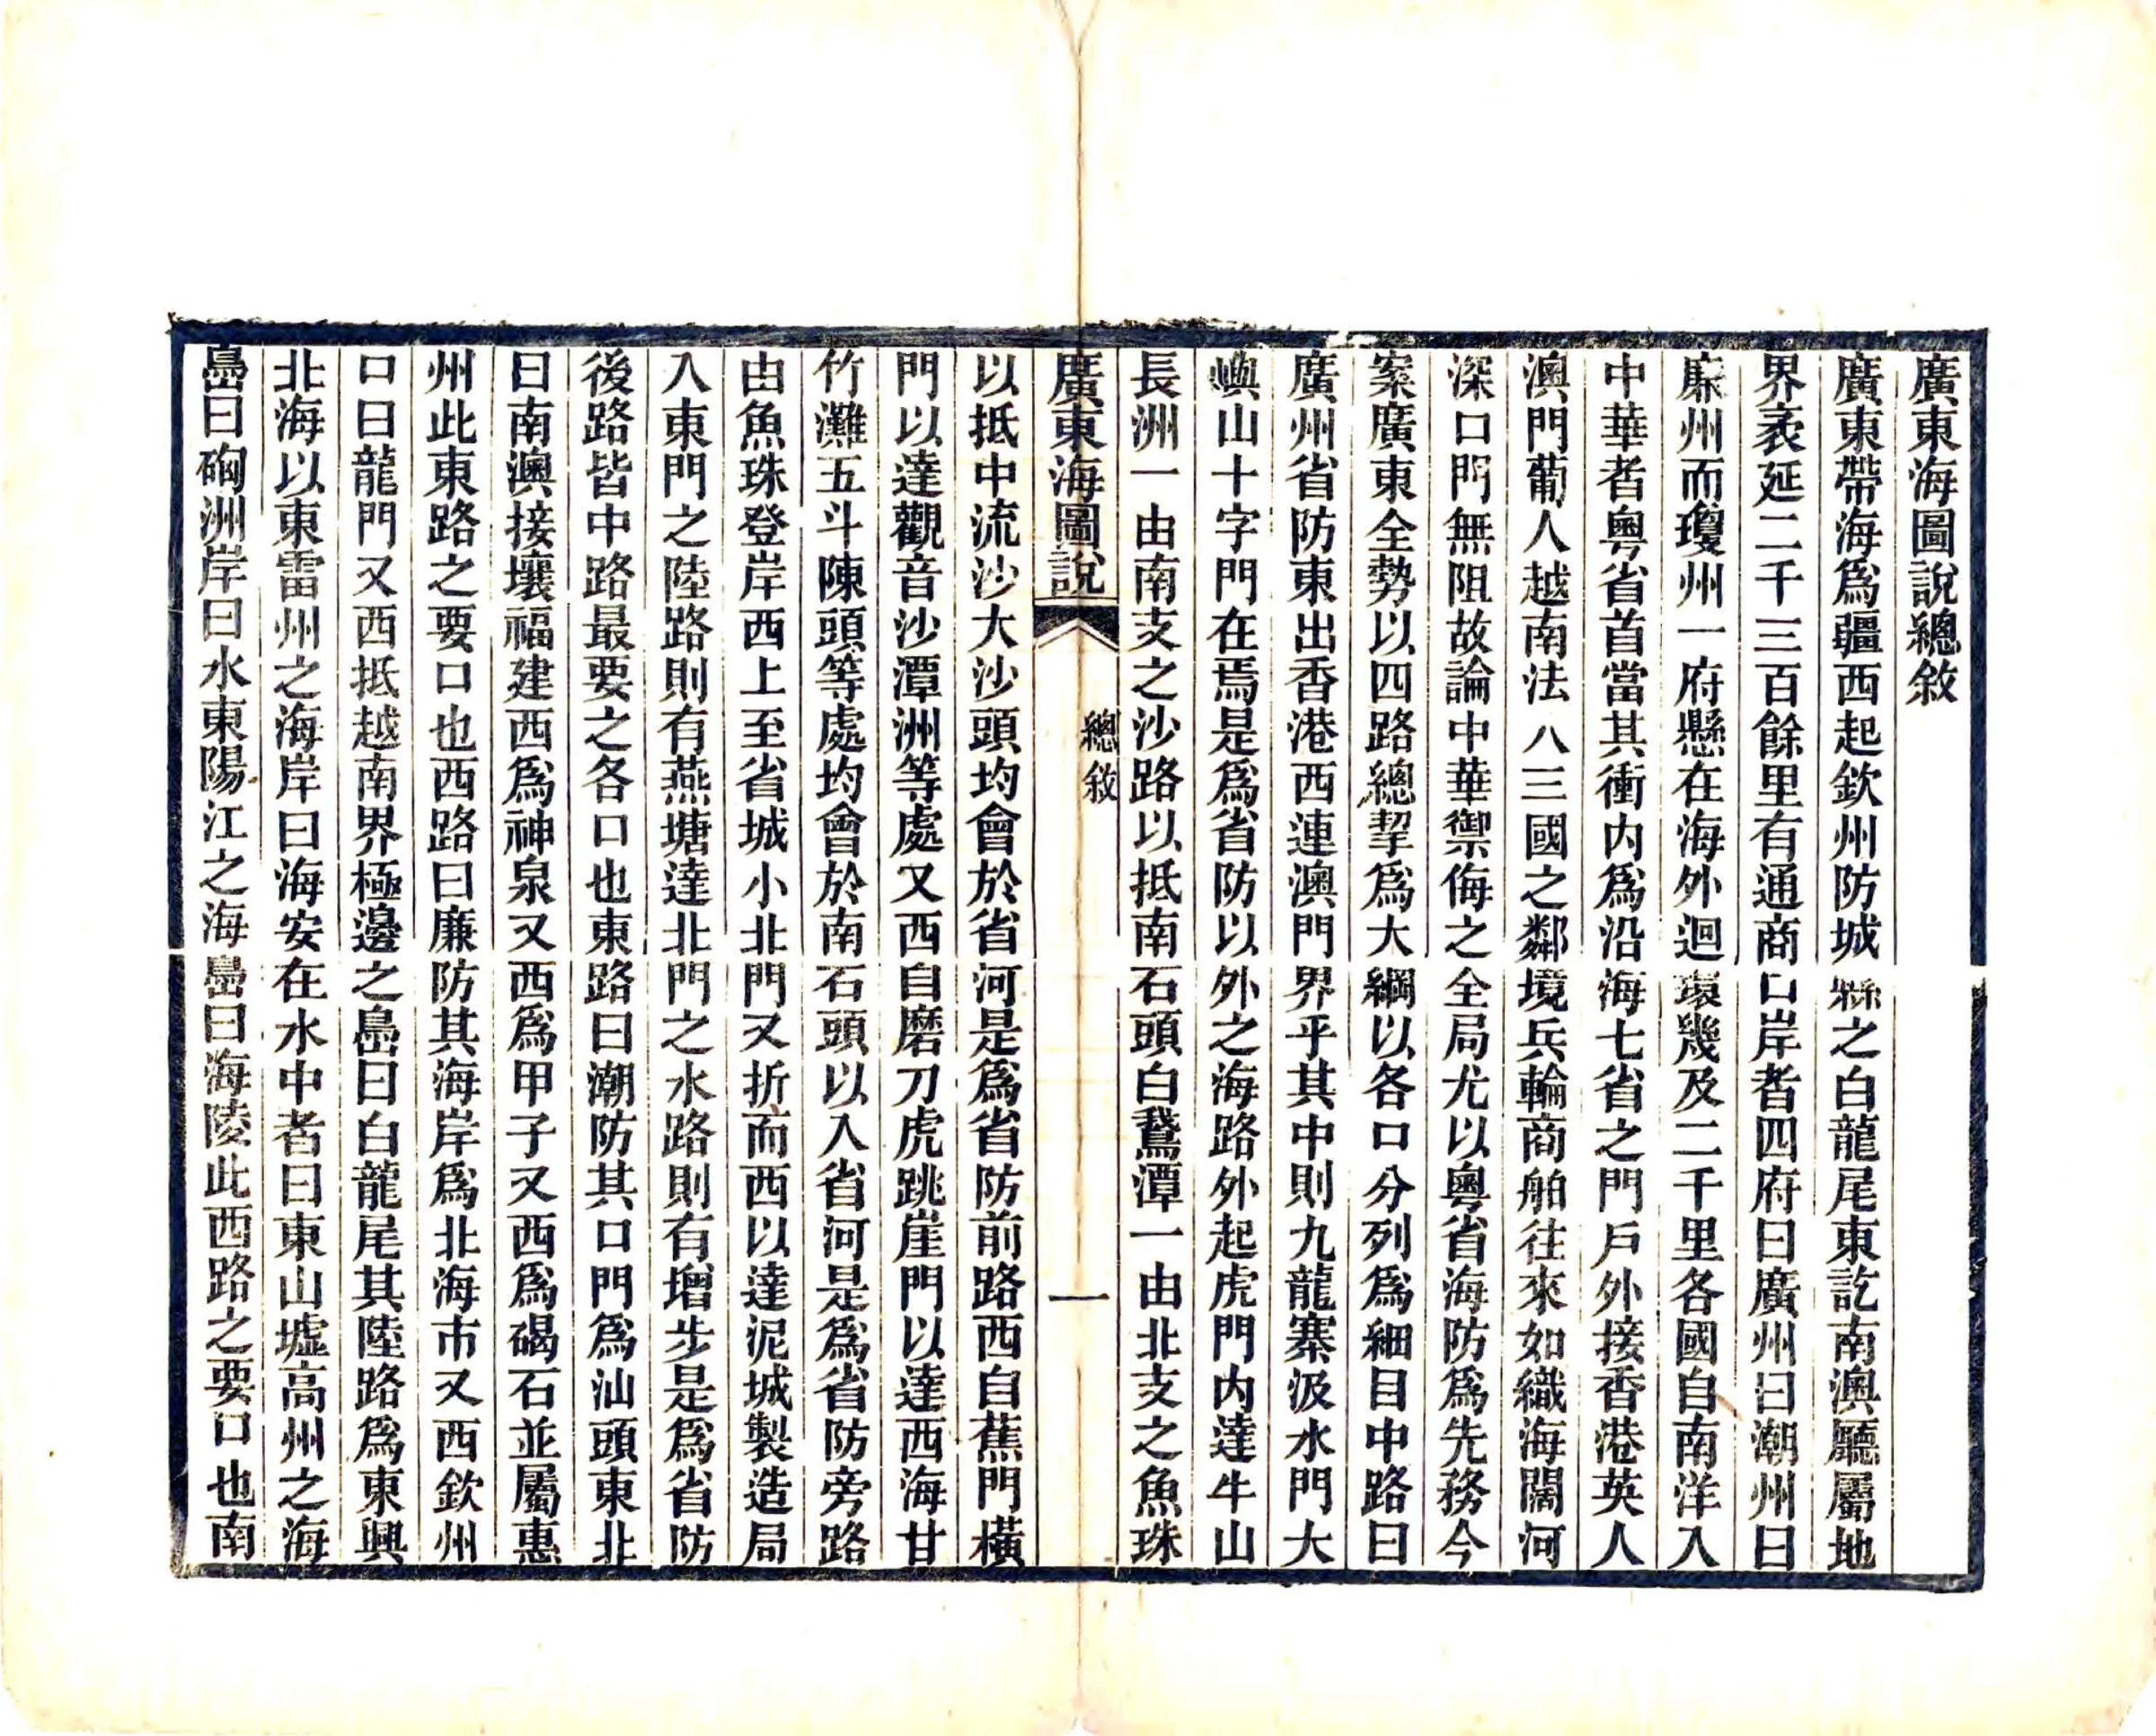 廣東海圖說總敘
廣東帶海爲疆西起欽州防城縣之白龍尾東訖南澳廳屬地
界袤延二千三百餘里有通商口岸者四府曰廣州曰潮州曰
廉州而瓊州一府懸在海外迴環幾及二千里各國自南洋入
中華者粵省首當其衝内爲沿海七省之門戶外接香港英人
澳門葡人越南法人三國之鄰境兵輪商舶往來如織海闊河
深口門無阻故論中華禦侮之全局尤以粵省海防爲先務今
案廣東全勢以四路總挈爲大綱以各口分列爲細目中路曰
廣州省防東出香港西連澳門界乎其中則九龍寨汲水門大
嶼山十字門在焉是爲省防以外之海路外起虎門内達牛山
長洲一由南支之沙路以抵南石頭白鵞潭一由北支之魚珠
廣東海圖說
總敘
一
以抵中流沙大沙頭均會於省河是爲省防前路西自蕉門橫
門以達觀音沙潭洲等處又西自磨刀虎跳崖門以達西海甘
竹灘五斗陳頭等處均會於南石頭以入省河是爲省防旁路
由魚珠登岸西上至省城小北門又折而西以達泥城製造局
入東門之陸路則有燕塘達北門之水路則有增步是爲省防
後路皆中路最要之各口也東路曰潮防其口門爲汕頭東北
曰南澳接壤福建西爲神泉又西爲甲子又西爲碣石並屬惠
州此東路之要口也西路曰廉防其海岸爲北海市又西欽州
口曰龍門又西抵越南界極邊之島曰白龍尾其陸路爲東興
北海以東雷州之海岸曰海安在水中者曰東山墟高州之海
島曰硇洲岸曰水東陽江之海島曰海陵此西路之要口也南